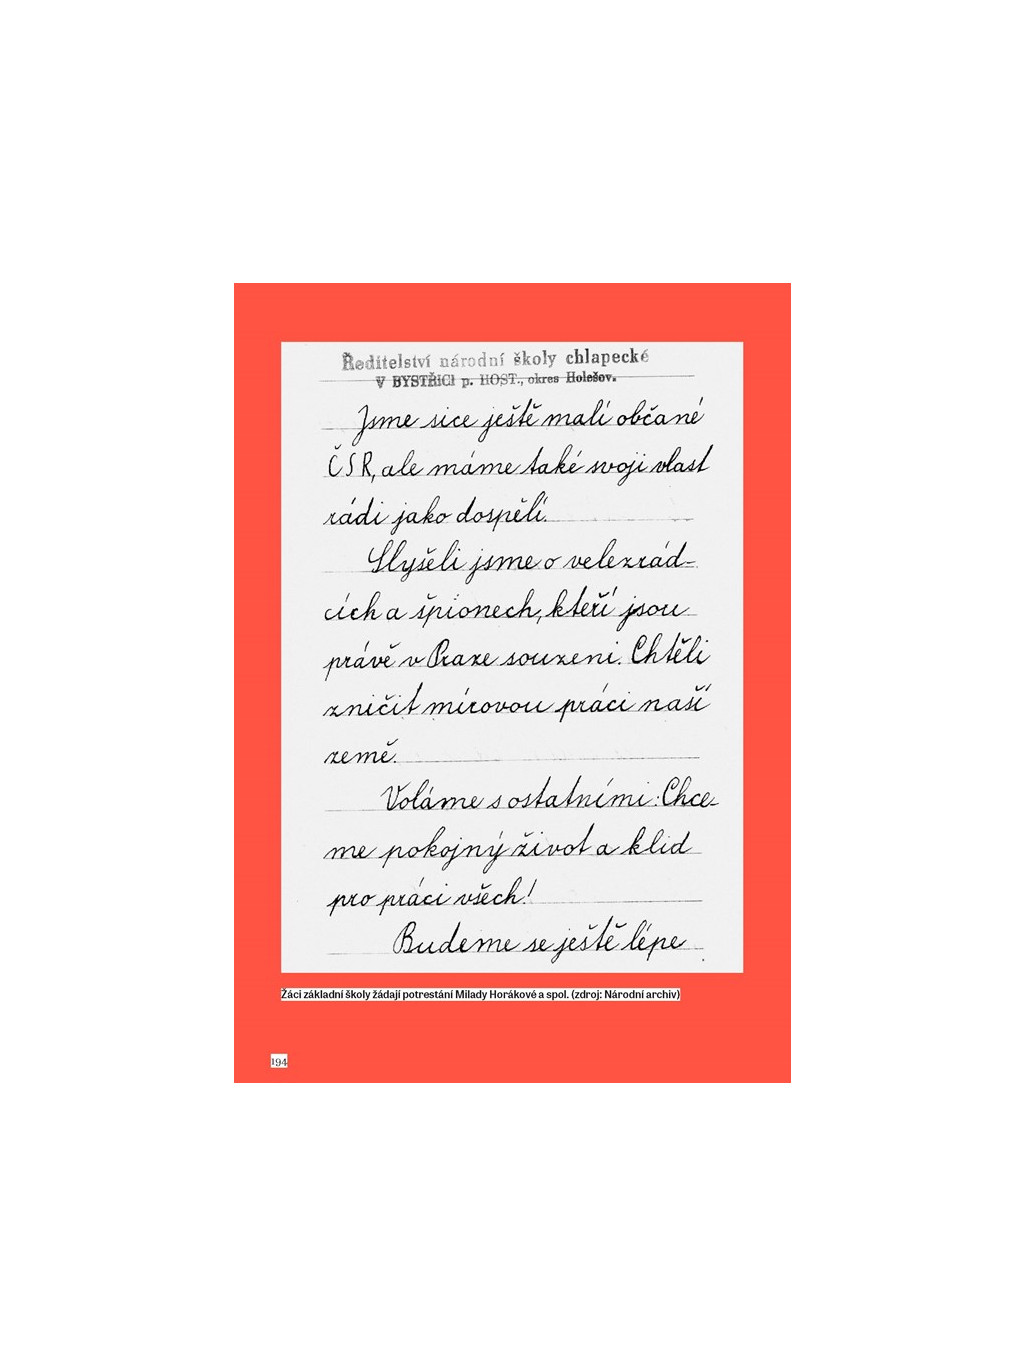 Ředitelství národní školy chlapecké
V BYSTŘICI p. HOST., okres Holešov.
Jsme sice ještě malí občané
ČSR, ale máme také svoji vlast
rádi jako dospělí.
Slyšeli jsme o velezrád-
cích a špionech, kteří jsou
právě v Praze souzeni. Chtěli
zničit mírovou práci naší
země.
Voláme s ostatními: Chce-
me pokojný život a klid
pro práci všech!
Budeme se ještě lépe
Žáci základní školy žádají potrestání Milady Horákové a spol. (zdroj: Národní archiv)
194